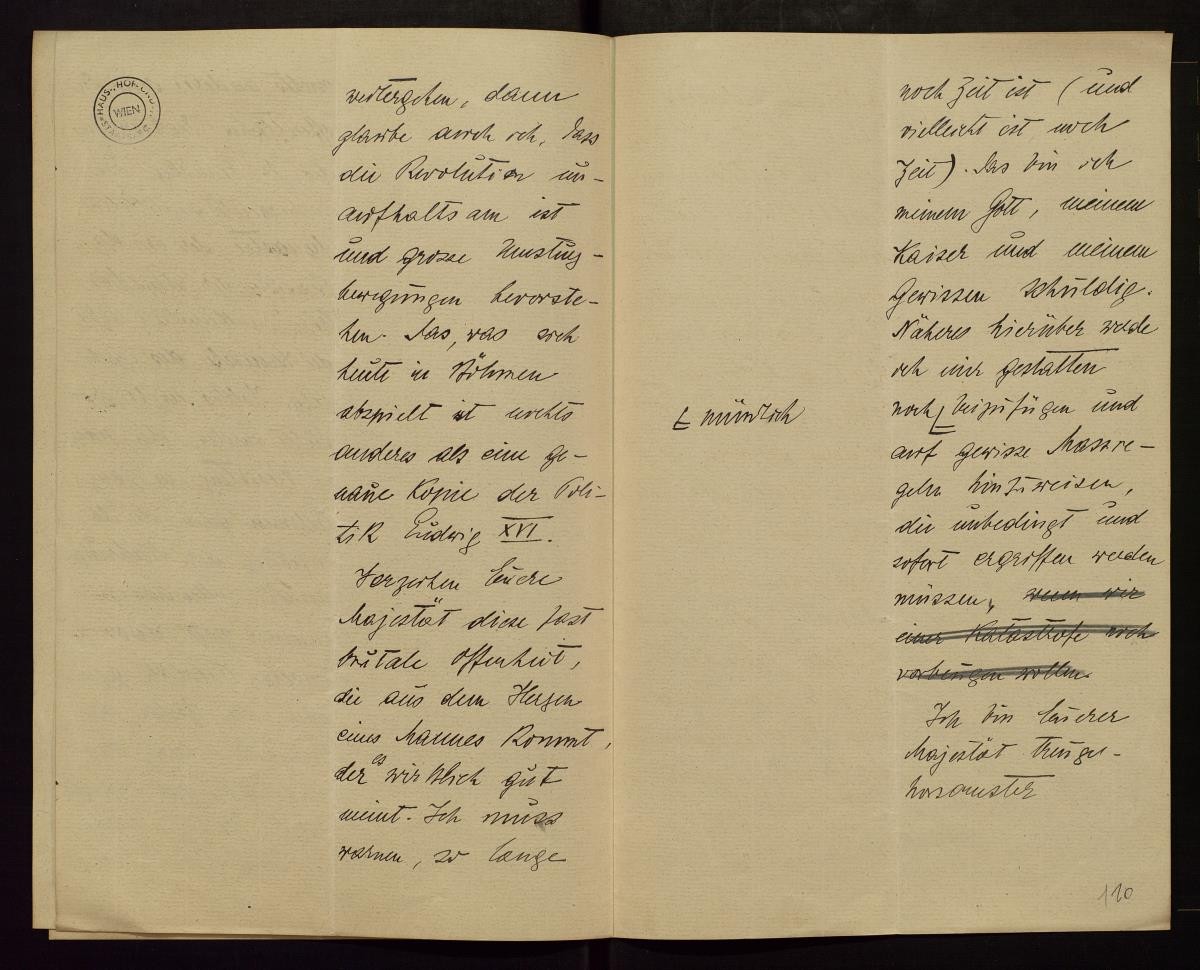 HAUS-, HOF- UND
STAATS
WIEN
weitergehen, dann
glaube auch ich, dass
die Revolution un-
aufhaltsam ist
und grosse Umsturz-
bewegungen bevorste-
hen. Das, was sich
heute in Böhmen
abspielt ist nichts
anderes als eine ge-
naue Kopie der Poli-
tik Ludwig XVI.
Verzeihen Eure
Majestät diese fast
brutale Offenheit,
die aus dem Herzen
eines Mannes kommt,
der es wirklich gut
meint. Ich muss
warnen, so lange
noch Zeit ist (und
vielleicht ist noch
Zeit). Das bin ich
meinem Gott, meinem
Kaiser und meinem
Gewissen schuldig.
Näheres hierüber werde
ich mir gestatten
noch ⌊ beizufügen und
⌊ mündlich
auf gewisse Massre-
geln hinzuweisen,
die unbedingt und
sofort ergriffen werden
müssen, wenn wir
einer Katastrofe noch
vorbeugen wollen.
Ich bin Euerer
Majestät treuge-
horsamster
110